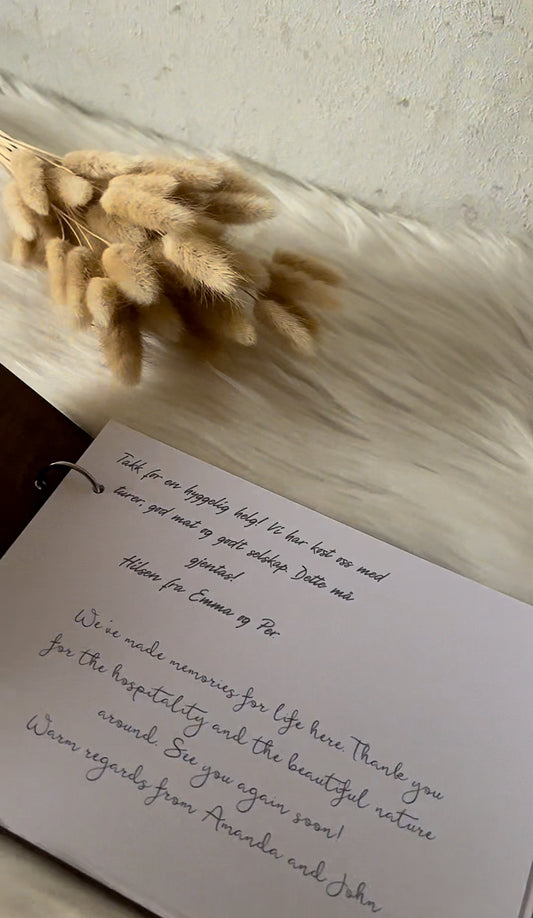 Takk for en hyggelig helg! Vi har kost oss med
turer, god mat og godt selskap. Dette må
gjentas!
Hilsen fra Emma og Per.
We've made memories for life here. Thank you
for the hospitality and the beautiful nature
around. See you again soon!
Warm regards from Amanda and John